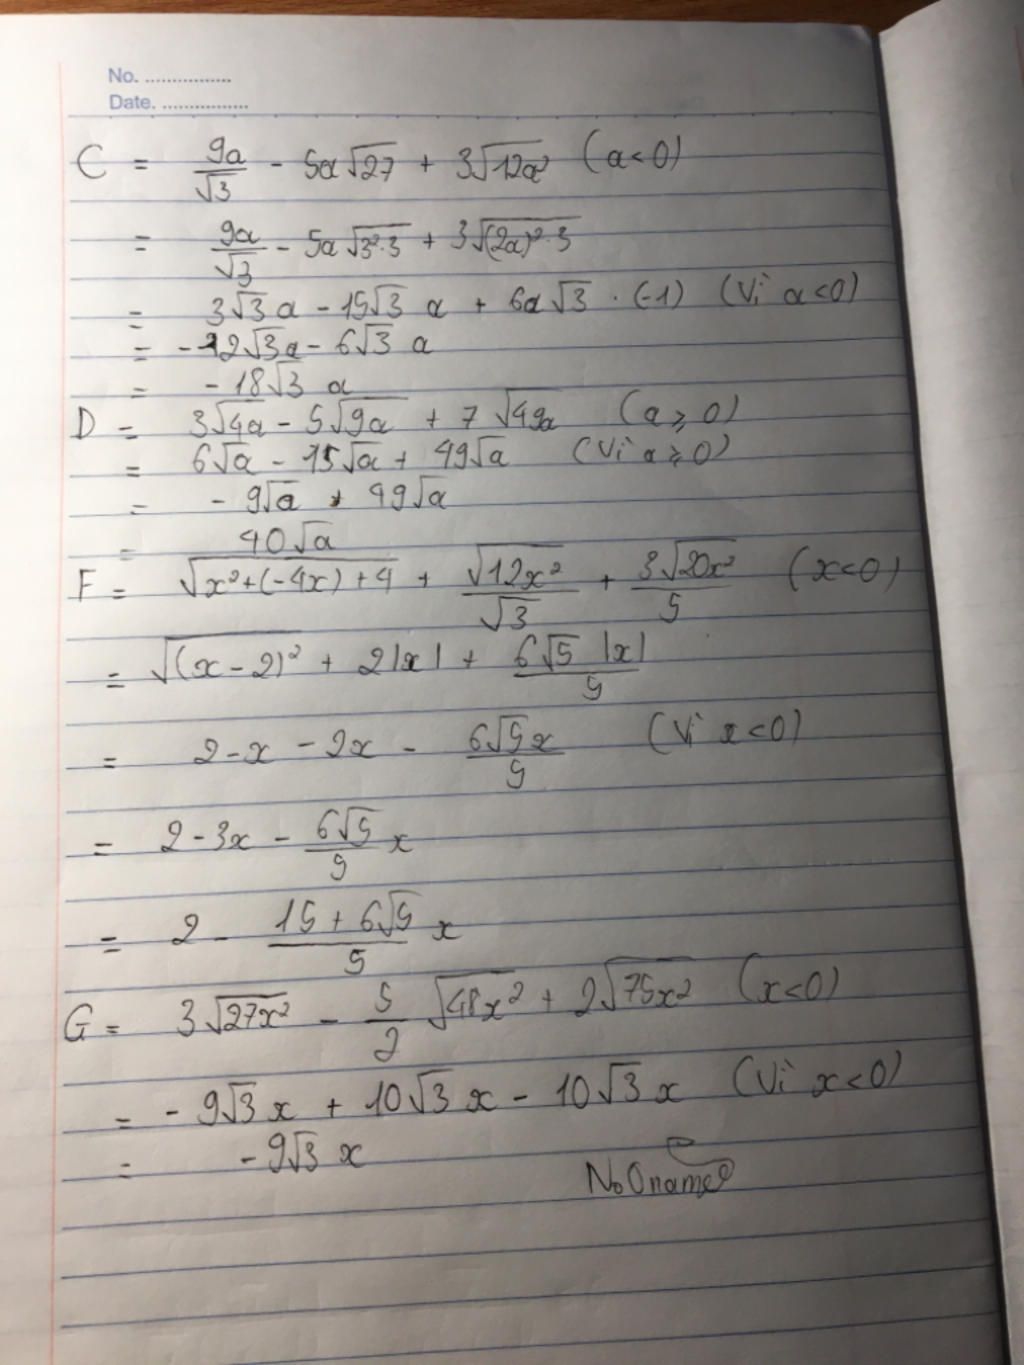 No. ................
Date. ................
C = 9a/√3 - 5a√27 + 3√12a² (a<0)
= 9a/√3 - 5a√3²·3 + 3√(2a)²·3
= 3√3 a - 15√3 a + 6a√3 · (-1) (Vì a<0)
= -12√3 a - 6√3 a
= -18√3 a
D = 3√4a - 5√9a + 7√49a (a ⩾ 0)
= 6√a - 15√a + 49√a (Vì a ⩾ 0)
= -9√a + 49√a
= 40√a
F = √x²+(-4x)+4 + √12x²/√3 + 3√20x²/5 (x<0)
= √(x-2)² + 2|x| + 6√5 |x|/5
= 2-x - 2x - 6√5x/5 (Vì x<0)
= 2-3x - 6√5/5 x
= 2 - 15+6√5/5 x
G = 3√27x² - 5/2 √48x² + 2√75x² (x<0)
= -9√3x + 10√3x - 10√3x (Vì x<0)
= -9√3 x
NoOname